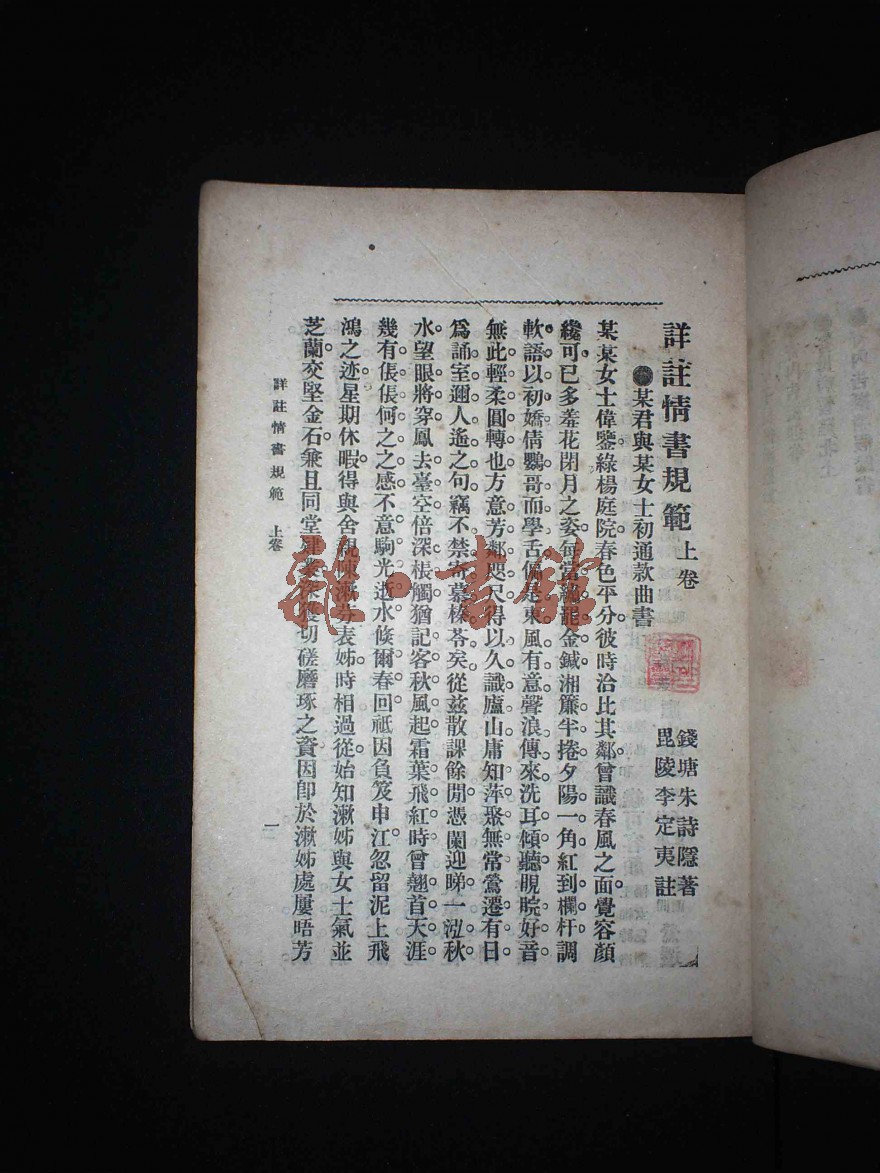 詳註情書規範 上卷
錢塘朱詩隱著
毘陵李定夷註
●某君與某女士初通款曲書
某某女士偉鑒綠楊庭院春色平分彼時洽比其鄰曾識春風之面覺容顏
纔可已多羞花閉月之姿每當繡罷金鍼湘簾半捲夕陽一角紅到欄杆調
軟語以初嬌倩鸚哥而學舌偏是東風有意聲浪傳來洗耳傾聽睍睆好音
無此輕柔圓轉也方意芳鄰咫尺得以久識廬山庸知萍聚無常鶯遷有日
爲誦室邇人遙之句竊不禁寄慕榛苓矣從兹散課餘閒憑闌迎睇一泓秋
水望眼將穿鳳去臺空倍深棖觸猶記客秋風起霜葉飛紅時曾翹首天涯
幾有倀倀何之之感不意駒光逝水倏爾春回祇因負笈申江忽留泥上飛
鴻之迹星期休暇得與舍親陳漱芬表姊時相過從始知漱姊與女士氣並
芝蘭交堅金石兼且同堂肄業深獲切磋磨琢之資因卽於漱姊處屢晤芳
詳註情書規範 上卷
一
雅·書館